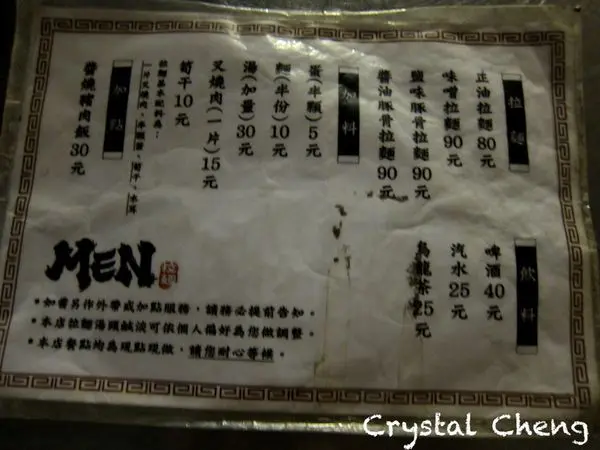 拉麵
正油拉麵80元
味噌拉麵90元
鹽味豚骨拉麵90元
醬油豚骨拉麵90元
加料
蛋(半顆)5元
麵(半份)10元
湯(加量)30元
叉燒肉(一片)15元
筍干10元
拉麵基本配料為：
加點
醬燒豬肉飯30元
飲料
啤酒40元
汽水25元
烏龍茶25元
MEN
*如需另作外帶或加點服務，請務必提前告知。
*本店拉麵湯頭鹹淡可依個人偏好為您做調整。
*本店餐點均為現點現做，請您耐心等候。
Crystal Cheng